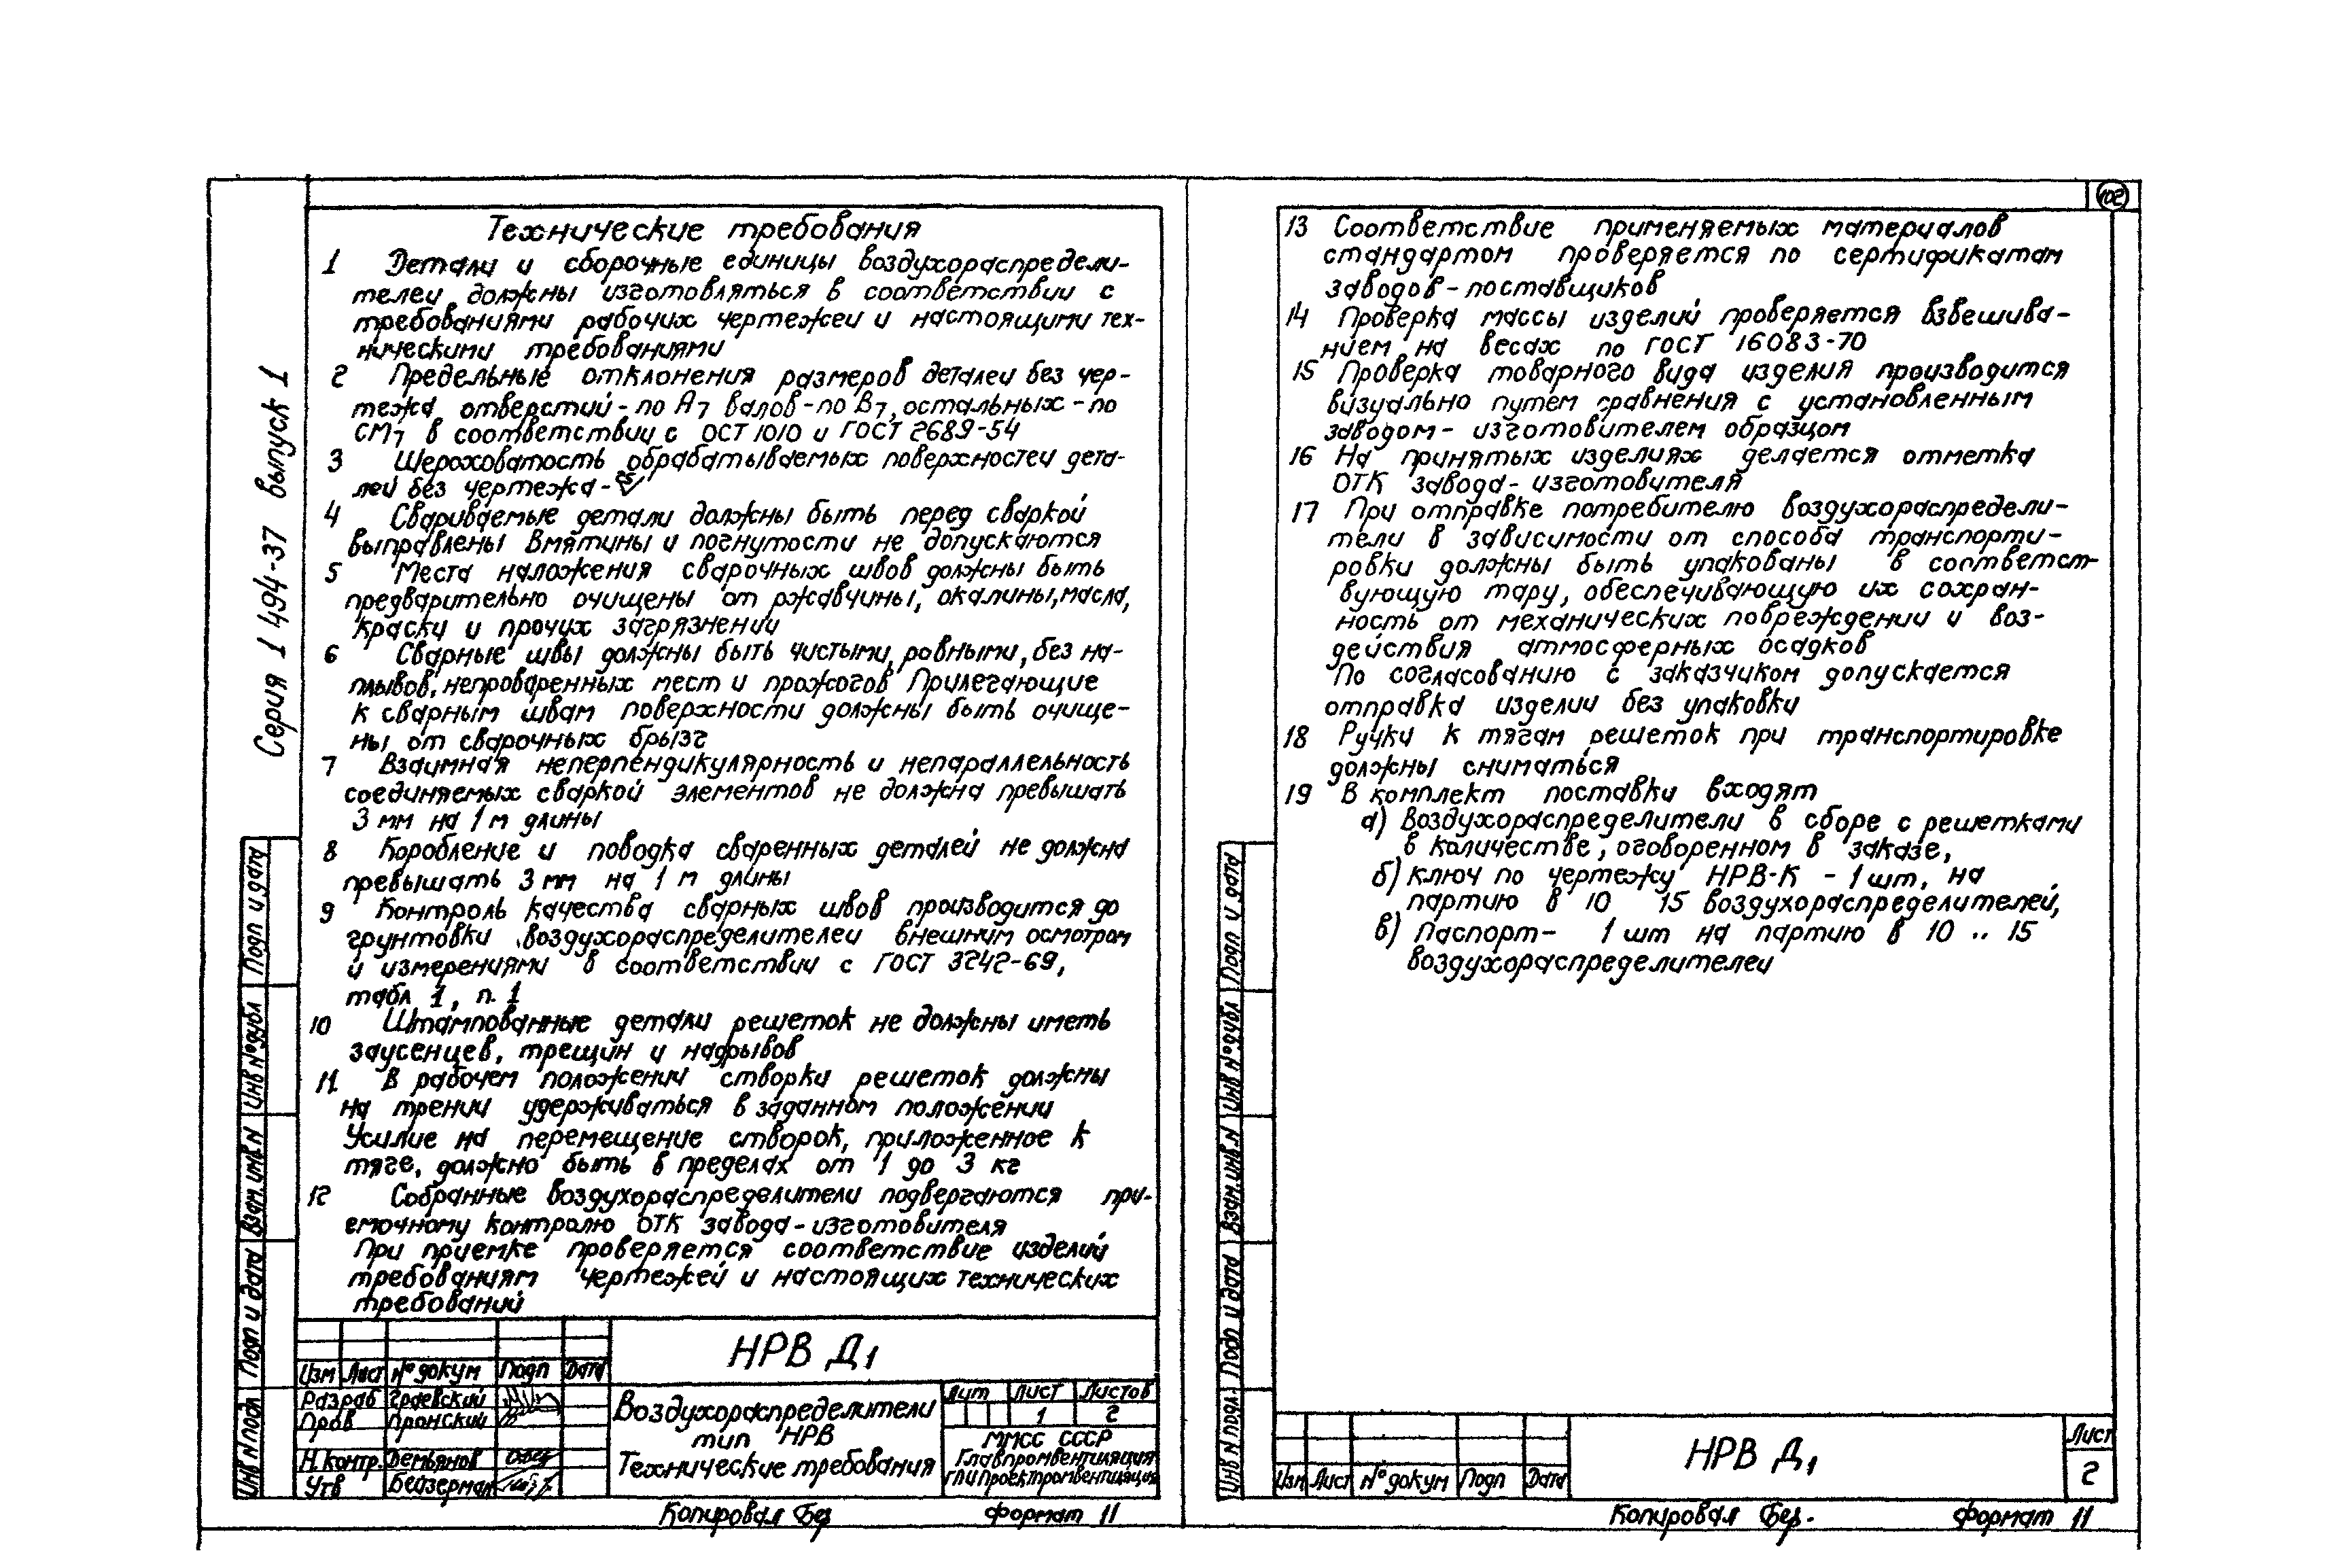 Серия 1 494-37 выпуск 1
Технические требования
1 Детали и сборочные единицы воздухораспредели-
телеи должны изготовляться в соответствии с
требованиями рабочих чертежеи и настоящими тех-
ническими требованиями
2 Предельные отклонения размеров деталеи без чер-
тежа отверстий - по А7 валов - по В7, остальных - по
СМ7 в соответствии с ОСТ 1010 и ГОСТ 2689-54
3 Шероховатость обрабатываемых поверхностеи дета-
лей без чертежа -
4 Свариваемые детали должны быть перед сваркой
выправлены Вмятины и погнутости не допускаются
5 Места наложения сварочных швов должны быть
предварительно очищены от ржавчины, окалины, масла,
краски и прочих загрязнении
6 Сварные швы должны быть чистыми, ровными, без на-
плывов, непроваренных мест и прожогов Прилегающие
к сварным швам поверхности должны быть очище-
ны от сварочных брызг
7 Взаимная неперпендикулярность и непараллельность
соединяемых сваркой элементов не должна превышать
3 мм на 1 м длины
8 Коробление и поводка сваренных деталей не должна
превышать 3 мм на 1 м длины
9 Контроль качества сварных швов производится до
грунтовки воздухораспределителеи внешним осмотром
и измерениями в соответствии с ГОСТ 3242-69,
табл 1, п. 1
10 Штампованные детали решеток не должны иметь
заусенцев, трещин и надрывов
11 В рабочем положении створки решеток должны
на трении удерживаться в заданном положении
Усилие на перемещение створок, приложенное к
тяге, должно быть в пределах от 1 до 3 кг
12 Собранные воздухораспределители подвергаются при-
емочному контролю ОТК завода-изготовителя
При приемке проверяется соответствие изделий
требованиям чертежей и настоящих технических
требований
НРВ Д1
Изм Лист № докум Подп Дата
Разраб Граевский
Пров Пронский
Н.контр. Демьянов
Утв Бейзерман
Воздухораспределители
тип НРВ
Технические требования
Лит Лист Листов
1 2
ММСС СССР
Главпромвентиляция
ГПИ Проектпромвентиляция
Копировал Бер
Формат 11
Подп и дата
Инв № дубл
Взам. инв. №
Подп и дата
Инв № подл
102
13 Соответствие применяемых материалов
стандартом проверяется по сертификатам
заводов - поставщиков
14 Проверка массы изделий проверяется взвешива-
нием на весах по ГОСТ 16083-70
15 Проверка товарного вида изделия производится
визуально путем сравнения с установленным
заводом - изготовителем образцом
16 На принятых изделиях делается отметка
ОТК завода - изготовителя
17 При отправке потребителю воздухораспредели-
тели в зависимости от способа транспорти-
ровки должны быть упакованы в соответст-
вующую тару, обеспечивающую их сохран-
ность от механических повреждении и воз-
действия атмосферных осадков
По согласованию с заказчиком допускается
отправка изделии без упаковки
18 Ручки к тягам решеток при транспортировке
должны сниматься
19 В комплект поставки входят
а) Воздухораспределители в сборе с решетками
в количестве, оговоренном в заказе,
б) ключ по чертежу НРВ-К - 1 шт. на
партию в 10 15 воздухораспределителей,
в) Паспорт - 1 шт на партию в 10 .. 15
воздухораспределителеи
Подп и дата
Инв № дубл
Взам. инв. №
Подп и дата
Инв № подл.
Изм Лист № докум Подп Дата
НРВ Д1
Лист
2
Копировал Бер.
Формат 11